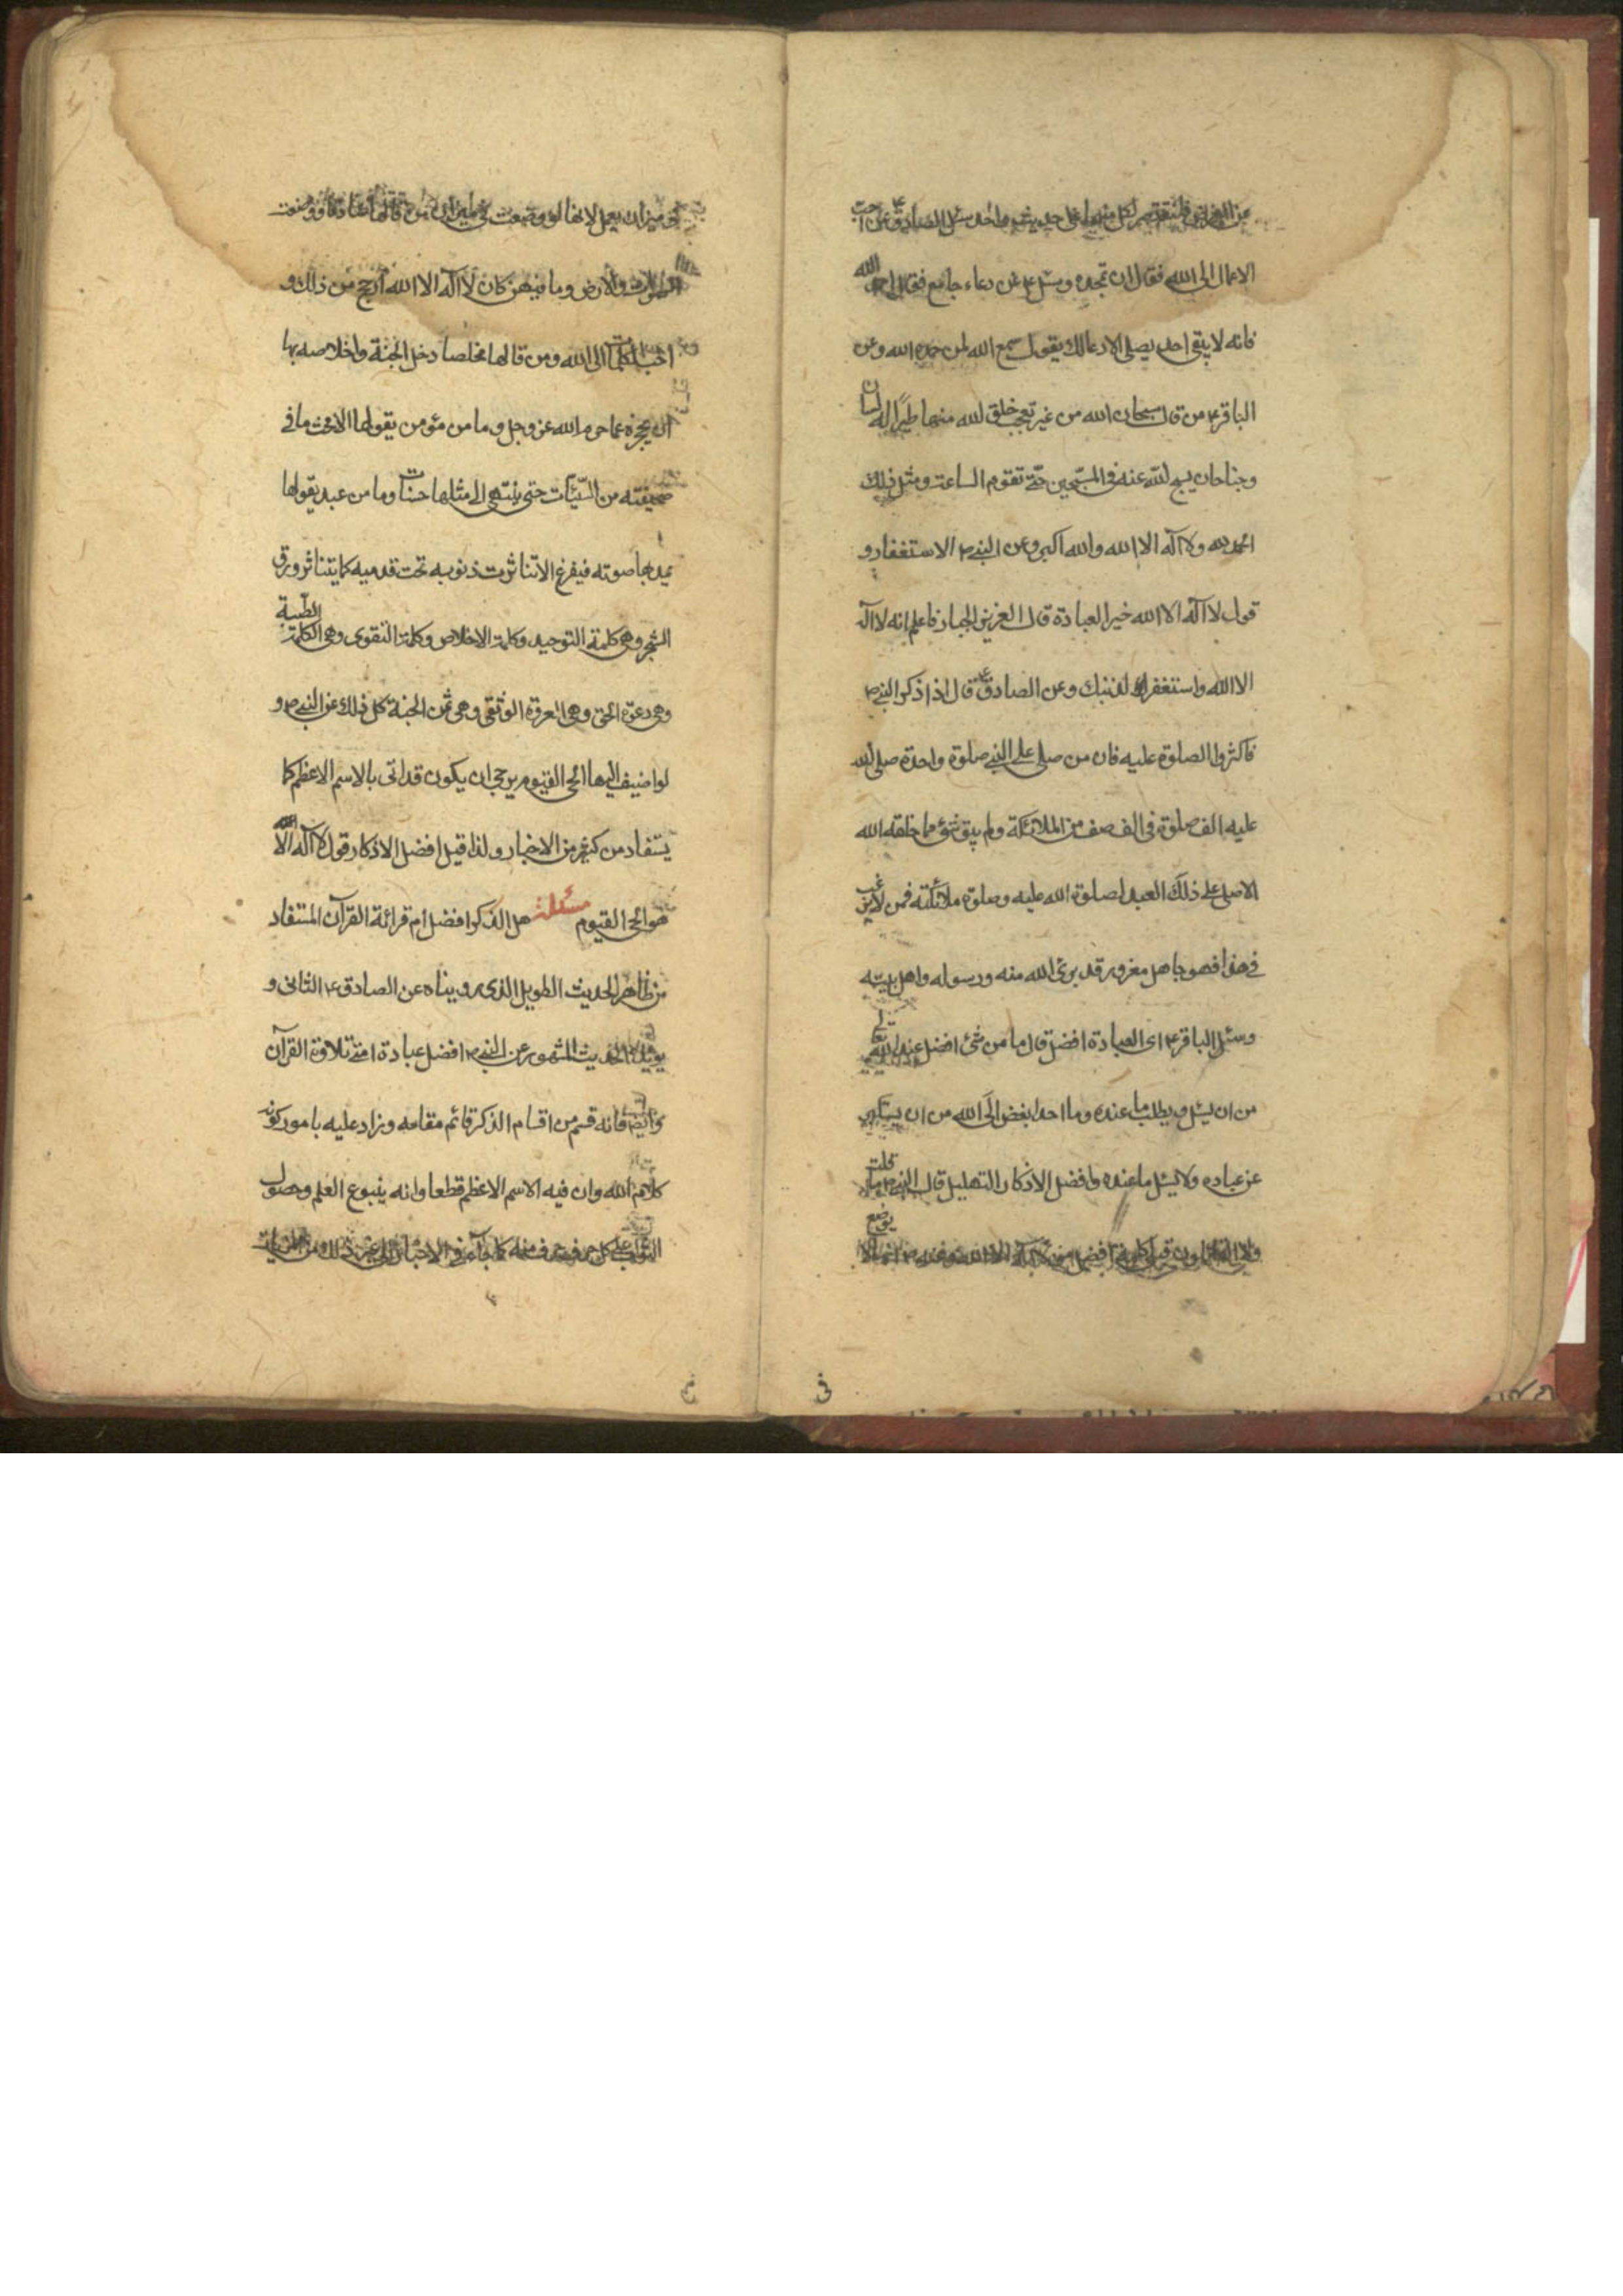 فلنقتصر لكل منها على حديث واحد سئل الصادق ع عن احب
الاعمال الى الله فقال ان تحمده وسئل ع عن دعاء جامع فقال احمد الله
فانه لا يبقى احد يصلى الا دعا لك يقول سمع الله لمن حمده الله وعن
الباقر ع من قال سبحان الله من غير تعجب خلق الله منها طيرًا له لسان
وجناحان يسبح لله عنه فى المسبّحين حتّى تقوم الساعة ومثل ذلك
الحمد لله ولا آله الا الله والله اكبر وعن النبى ص الاستغفار و
قول لا آله الا الله خير العبادة قال العزيز الجبار فاعلم انه لا آله
الا الله واستغفر لذنبك وعن الصادق ع قال اذا ذكر النبى ص
فاكثروا الصلوة عليه فان من صلى على النبى صلوة واحدة صلى الله
عليه الف صلوة فى الف صف من الملائكة ولم يبق شئ مما خلقه الله
الا صلى على ذلك العبد لصلوة الله عليه وصلوة ملائكته فمن لا يرغب
فى هذا فهو جاهل مغرور قد برئ الله منه ورسوله واهل بيته
وسئل الباقر ع اى العبادة افضل قال ما من شئ افضل عند الله تعا
من ان يسئل ويطلب ما عنده وما احد ابغض الى الله من ان يستكبر
عن عباده ولا يسئل ما عنده وافضل الاذكار التهليل قال النبى ص ما قلت
ولا القائلون قبلى كلمة افضل من لا آله الا الله وعنه ص انها لا يوضع
فى ميزان يعمل لانها لو وضعت فى ميزان من قالها صادقا ووضعت
السموات والارض وما فيهن كان لا آله الا الله ارجح من ذلك و
احب الكلمات الى الله ومن قالها مخلصا دخل الجنة واخلاصه بها
ان يحجزه عما حرم الله عز وجل وما من مؤمن يقولها الا محت ما فى
صحيفته من السّيّئات حتى ينتهى الى مثلها حسنات وما من عبد يقولها
يمد بها صوته فيفرغ الا تناثرت ذنوبه تحت قدميه كما يتناثر ورق
الشجر وهى كلمة التوحيد وكلمة الاخلاص وكلمة التقوى وهى الكلمة الطيّبة
وهى دعوة الحق وهى العروة الوثقى وهى ثمن الجنة كل ذلك عن النبى ص و
لو اضيف اليها الحى القيوم يرجى ان يكون قد اتى بالاسم الاعظم كما
يستفاد من كثير من الاخبار ولذا قيل افضل الاذكار قول لا آله الا الله
هو الحى القيوم مسئلة هل الذكر افضل ام قرائة القرآن المستفاد
من ظاهر الحديث الطويل الذى رويناه عن الصادق ع الثانى و
يؤيده الحديث المشهور عن النبى ص افضل عبادة امتى تلاوة القرآن
وايضا فانه قسم من اقسام الذكر قائم مقامه وزاد عليه بامور كونه
كلام الله وان فيه الاسم الاعظم قطعا وانه ينبوع العلم وحصول
الثواب على كل حرف حرف منه كما جاء فى الاخبار الى غير ذلك من